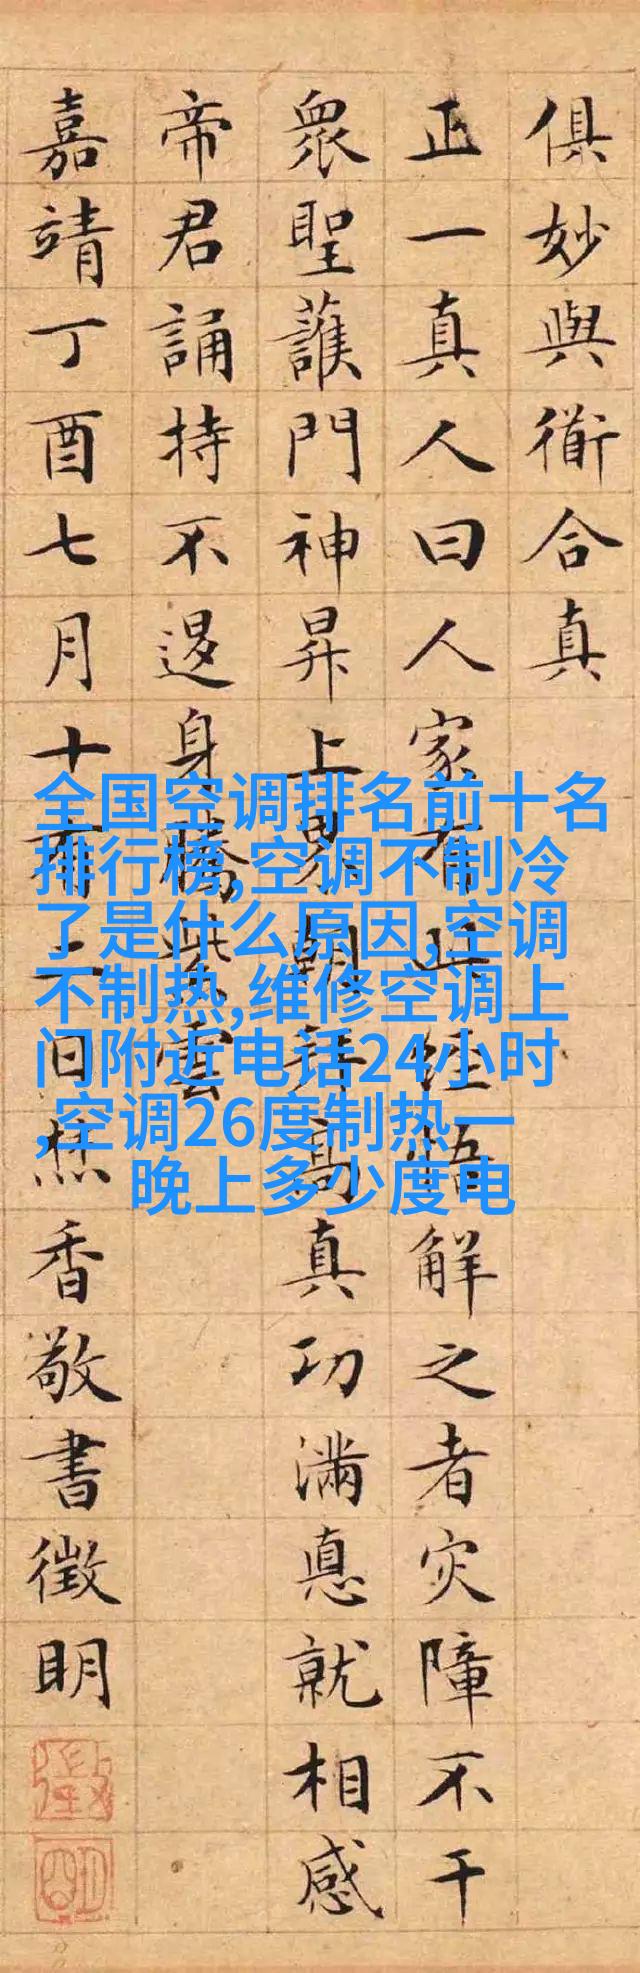 俱妙與衜合真
正一真人曰人家有此經悟解之者灾障不干
眾聖護門神昇上界朝拜高真功滿悳就相感
帝君誦持不退身騰紫雲
嘉靖丁酉七月十有二日焚香敬書徵明
徵
明
全国空调排名前十名
排行榜,空调不制冷
了是什么原因,空调
不制热,维修空调上
门附近电话24小时
,空调26度制热一
晚上多少度电